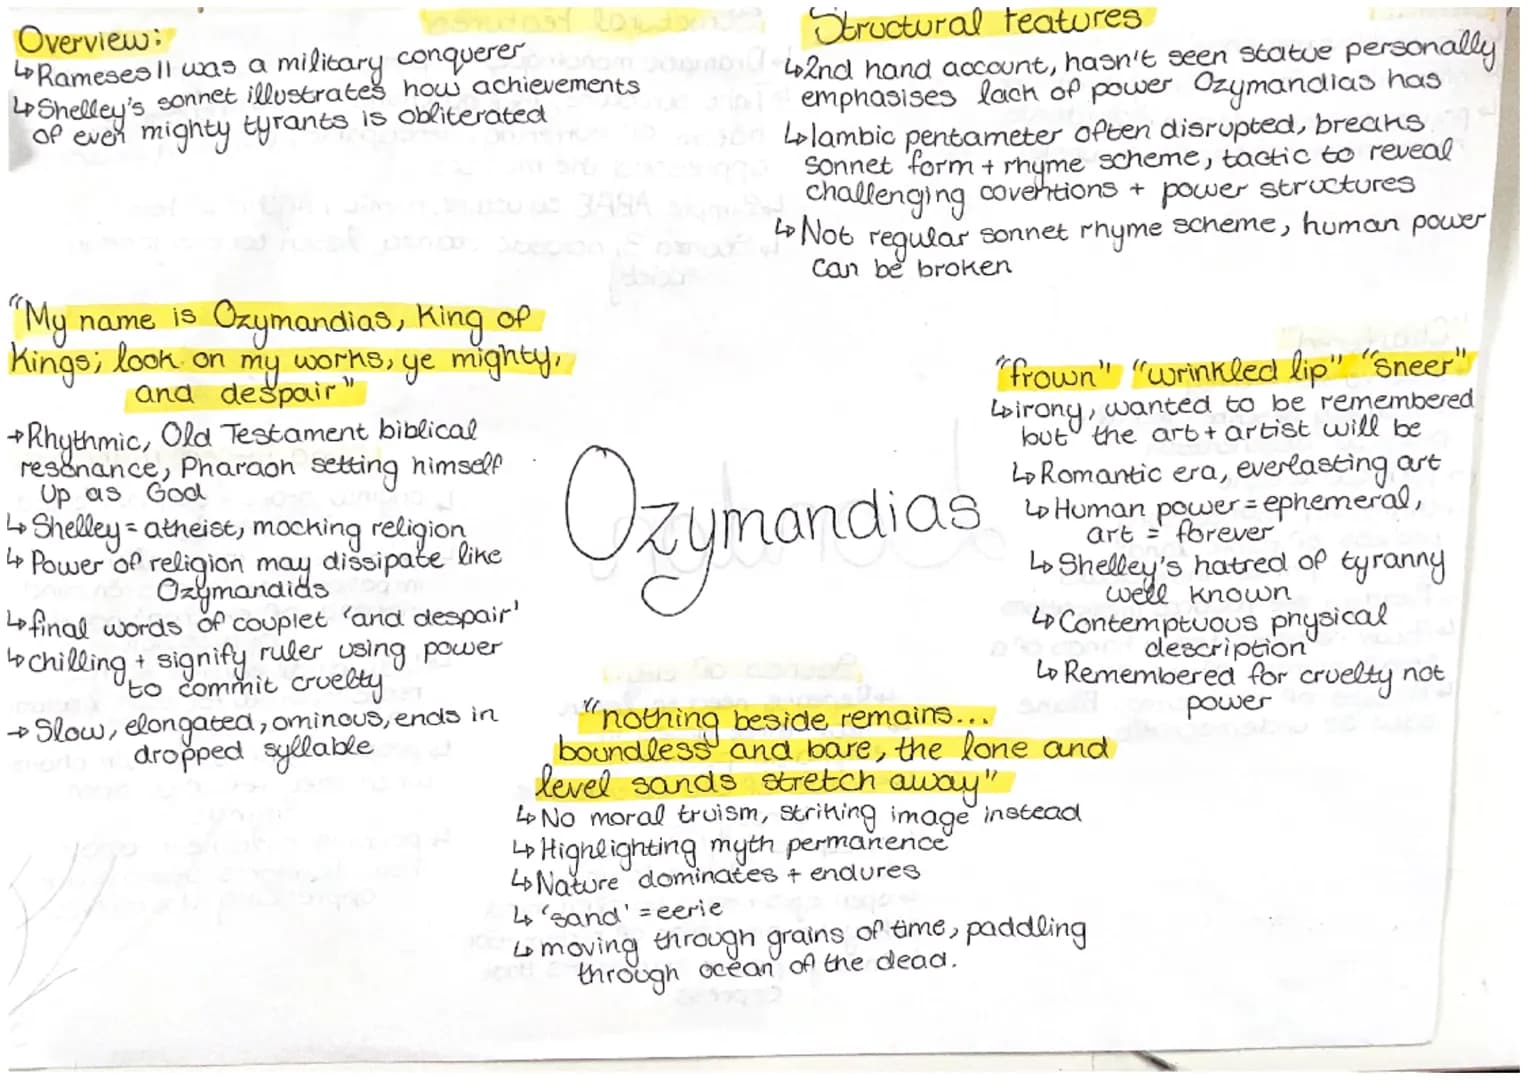 Overview:
↳ Rameses II was a military conquerer
↳ Shelley's sonnet illustrates how achievements
of even mighty tyrants is obliterated
Structural features
↳ 2nd hand account, hasn't seen statue personally
emphasises lack of power Ozymandias has
↳ Iambic pentameter often disrupted, breaks
sonnet form + rhyme scheme, tactic to reveal
challenging coventions + power structures
↳ Not regular sonnet rhyme scheme, human power
can be broken
"My name is Ozymandias, King of
Kings; look on my works, ye mighty,
and despair"
→ Rhythmic, Old Testament biblical
resonance, Pharaoh setting himself
up as God
↳ Shelley = atheist, mocking religion
↳ Power of religion may dissipate like
Ozymandias
↳ final words of couplet 'and despair'
↳ chilling + signify ruler using power
to commit cruelty
→ Slow, elongated, ominous, ends in
dropped syllable
Ozymandias
"frown" "wrinkled lip" "sneer"
↳ irony, wanted to be remembered
but the art + artist will be
↳ Romantic era, everlasting art
↳ Human power = ephemeral,
art = forever
↳ Shelley's hatred of tyranny
well known
↳ Contemptuous physical
description
↳ Remembered for cruelty not
power
"nothing beside remains...
boundless and bare, the lone and
level sands stretch away"
↳ No moral truism, striking image instead
↳ Highlighting myth permanence
↳ Nature dominates + endures
↳ 'sand' = eerie
↳ moving through grains of time, paddling
through ocean of the dead.